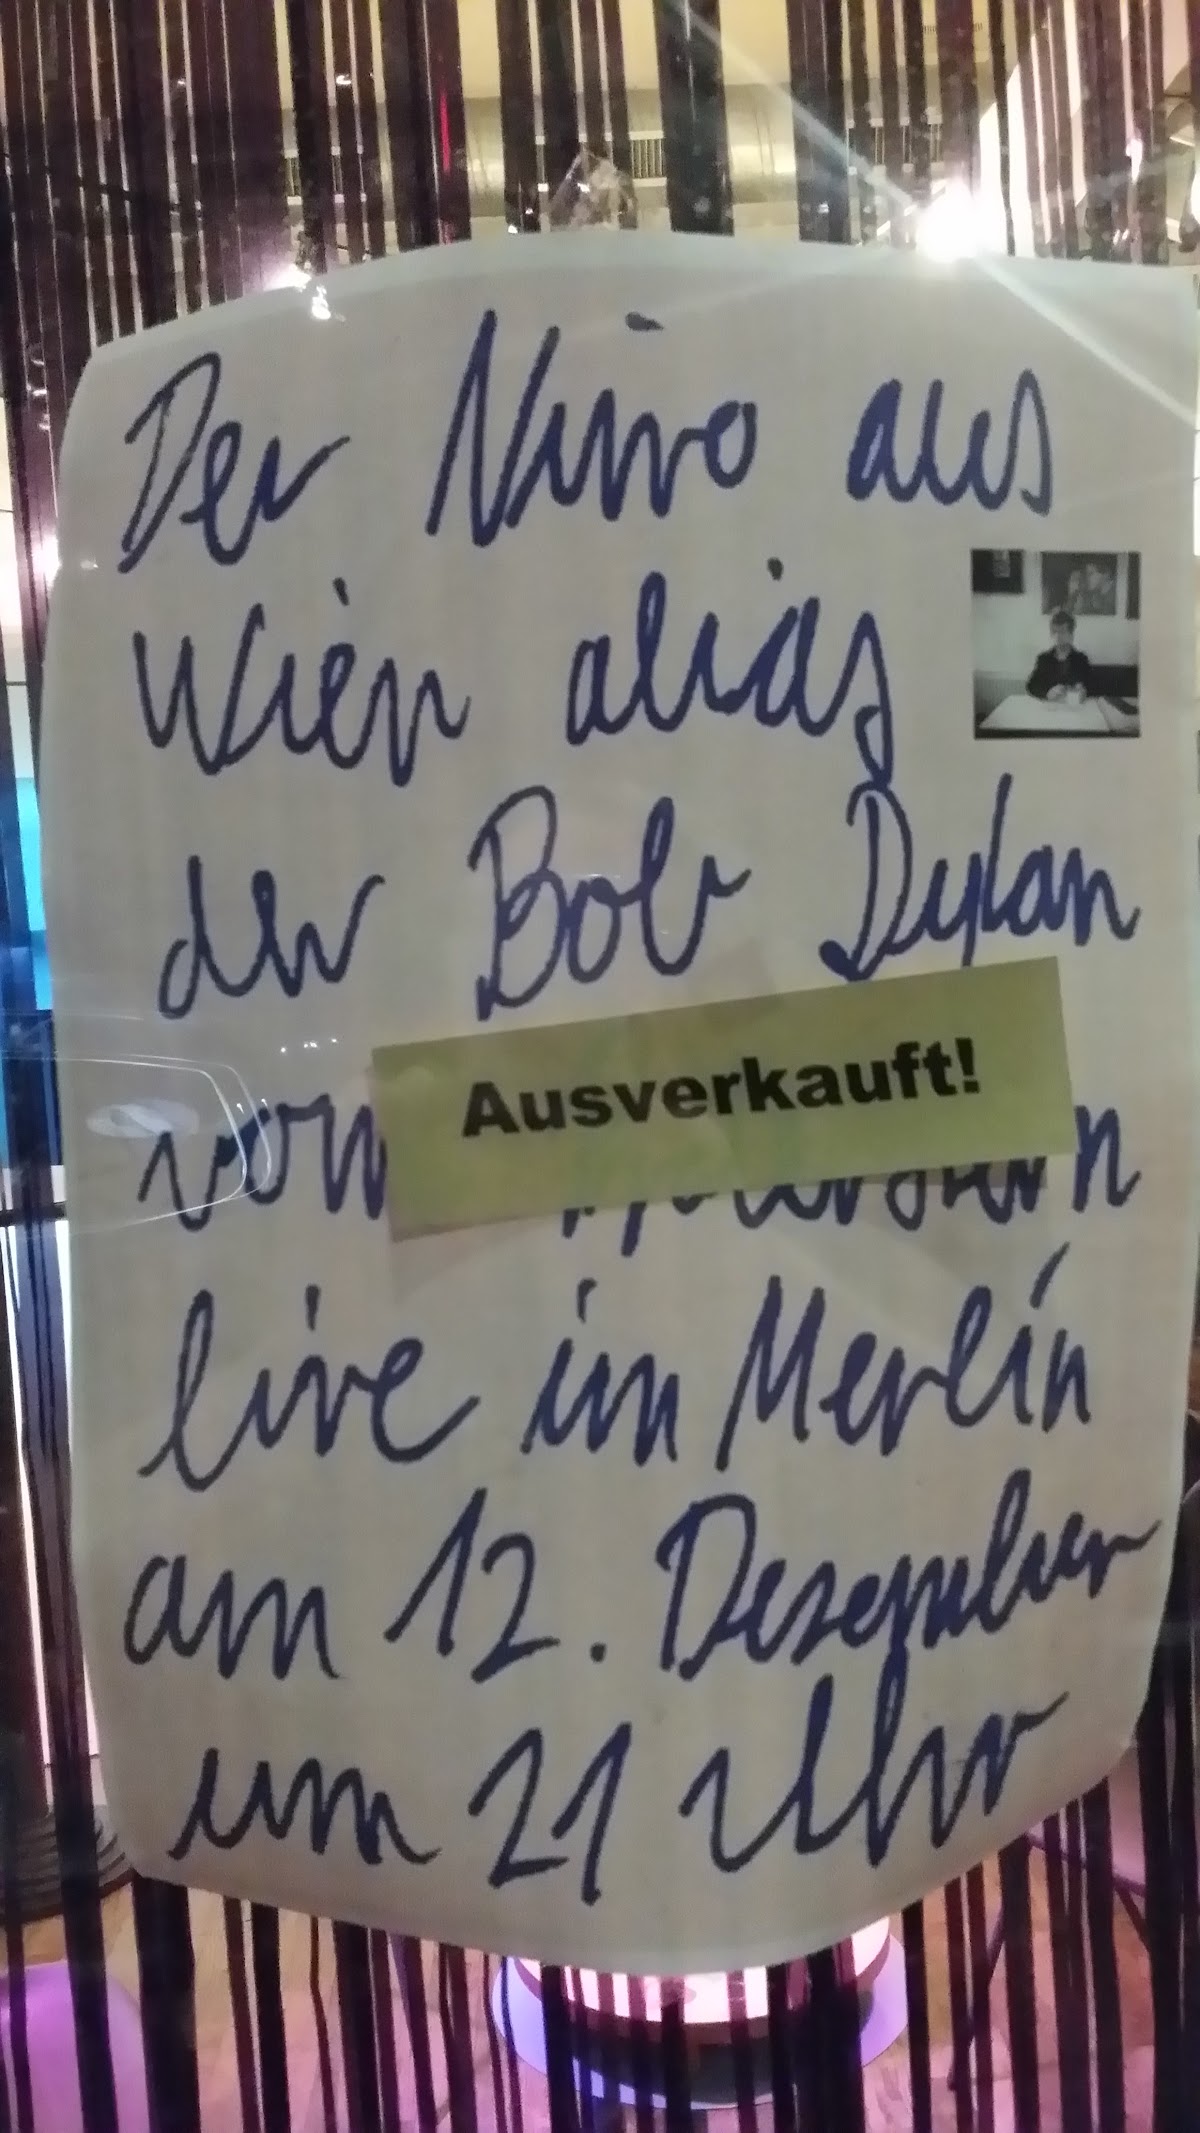 Der Nino aus
Wien alias
der Bob Dylan
vom
Ausverkauft!
live im Merlin
am 12. Dezember
um 21 Uhr